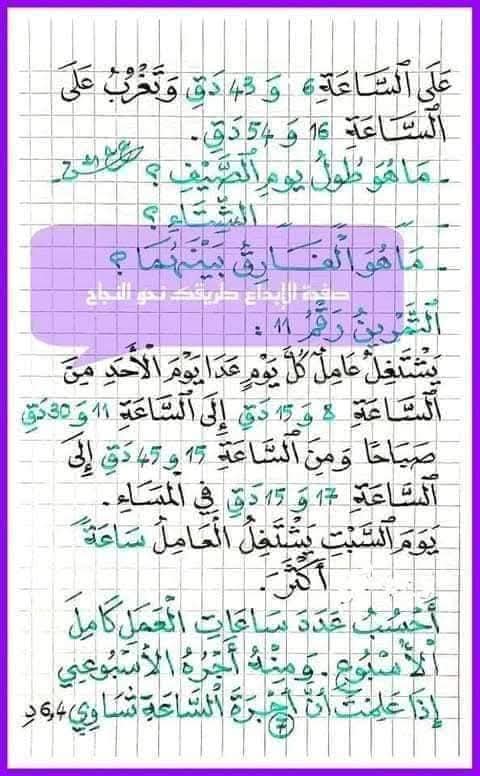 عَلَى السَّاعَةِ 6 وَ 43 دَقٍ وَتَغْرُبُ عَلَى
السَّاعَةِ 16 وَ 54 دَقٍ .
- مَا هُوَ طُولُ يومِ الصَّيْفِ ؟
- الشِّتَاءِ ؟
- مَا هُوَ الْفَارِقُ بَيْنَهُمَا ؟
صفحة الإبداع طريقك نحو النجاح
التَّمْرِينُ رَقْمُ 11 :
يَشْتَغِلُ عَامِلٌ كُلَّ يَوْمٍ عَدَا يَوْمَ الْأَحَدِ مِنَ
السَّاعَةِ 8 وَ 15 دَقٍ إِلَى السَّاعَةِ 11 وَ 30 دَقٍ
صَبَاحًا وَمِنَ السَّاعَةِ 15 وَ 45 دَقٍ إِلَى
السَّاعَةِ 17 وَ 15 دَقٍ فِي الْمَسَاءِ .
يَوْمَ السَّبْتِ يَشْتَغِلُ الْعَامِلُ سَاعَةً
أَكْثَرَ .
أَحْسُبُ عَدَدَ سَاعَاتِ الْعَمَلِ كَامِلَ
الْأُسْبُوعِ . وَمِنْهُ أَجْرُهُ الْأُسْبُوعِي
إِذَا عَلِمْتَ أَنَّ أُجْرَةَ السَّاعَةِ تُسَاوِي 6,4 د
7